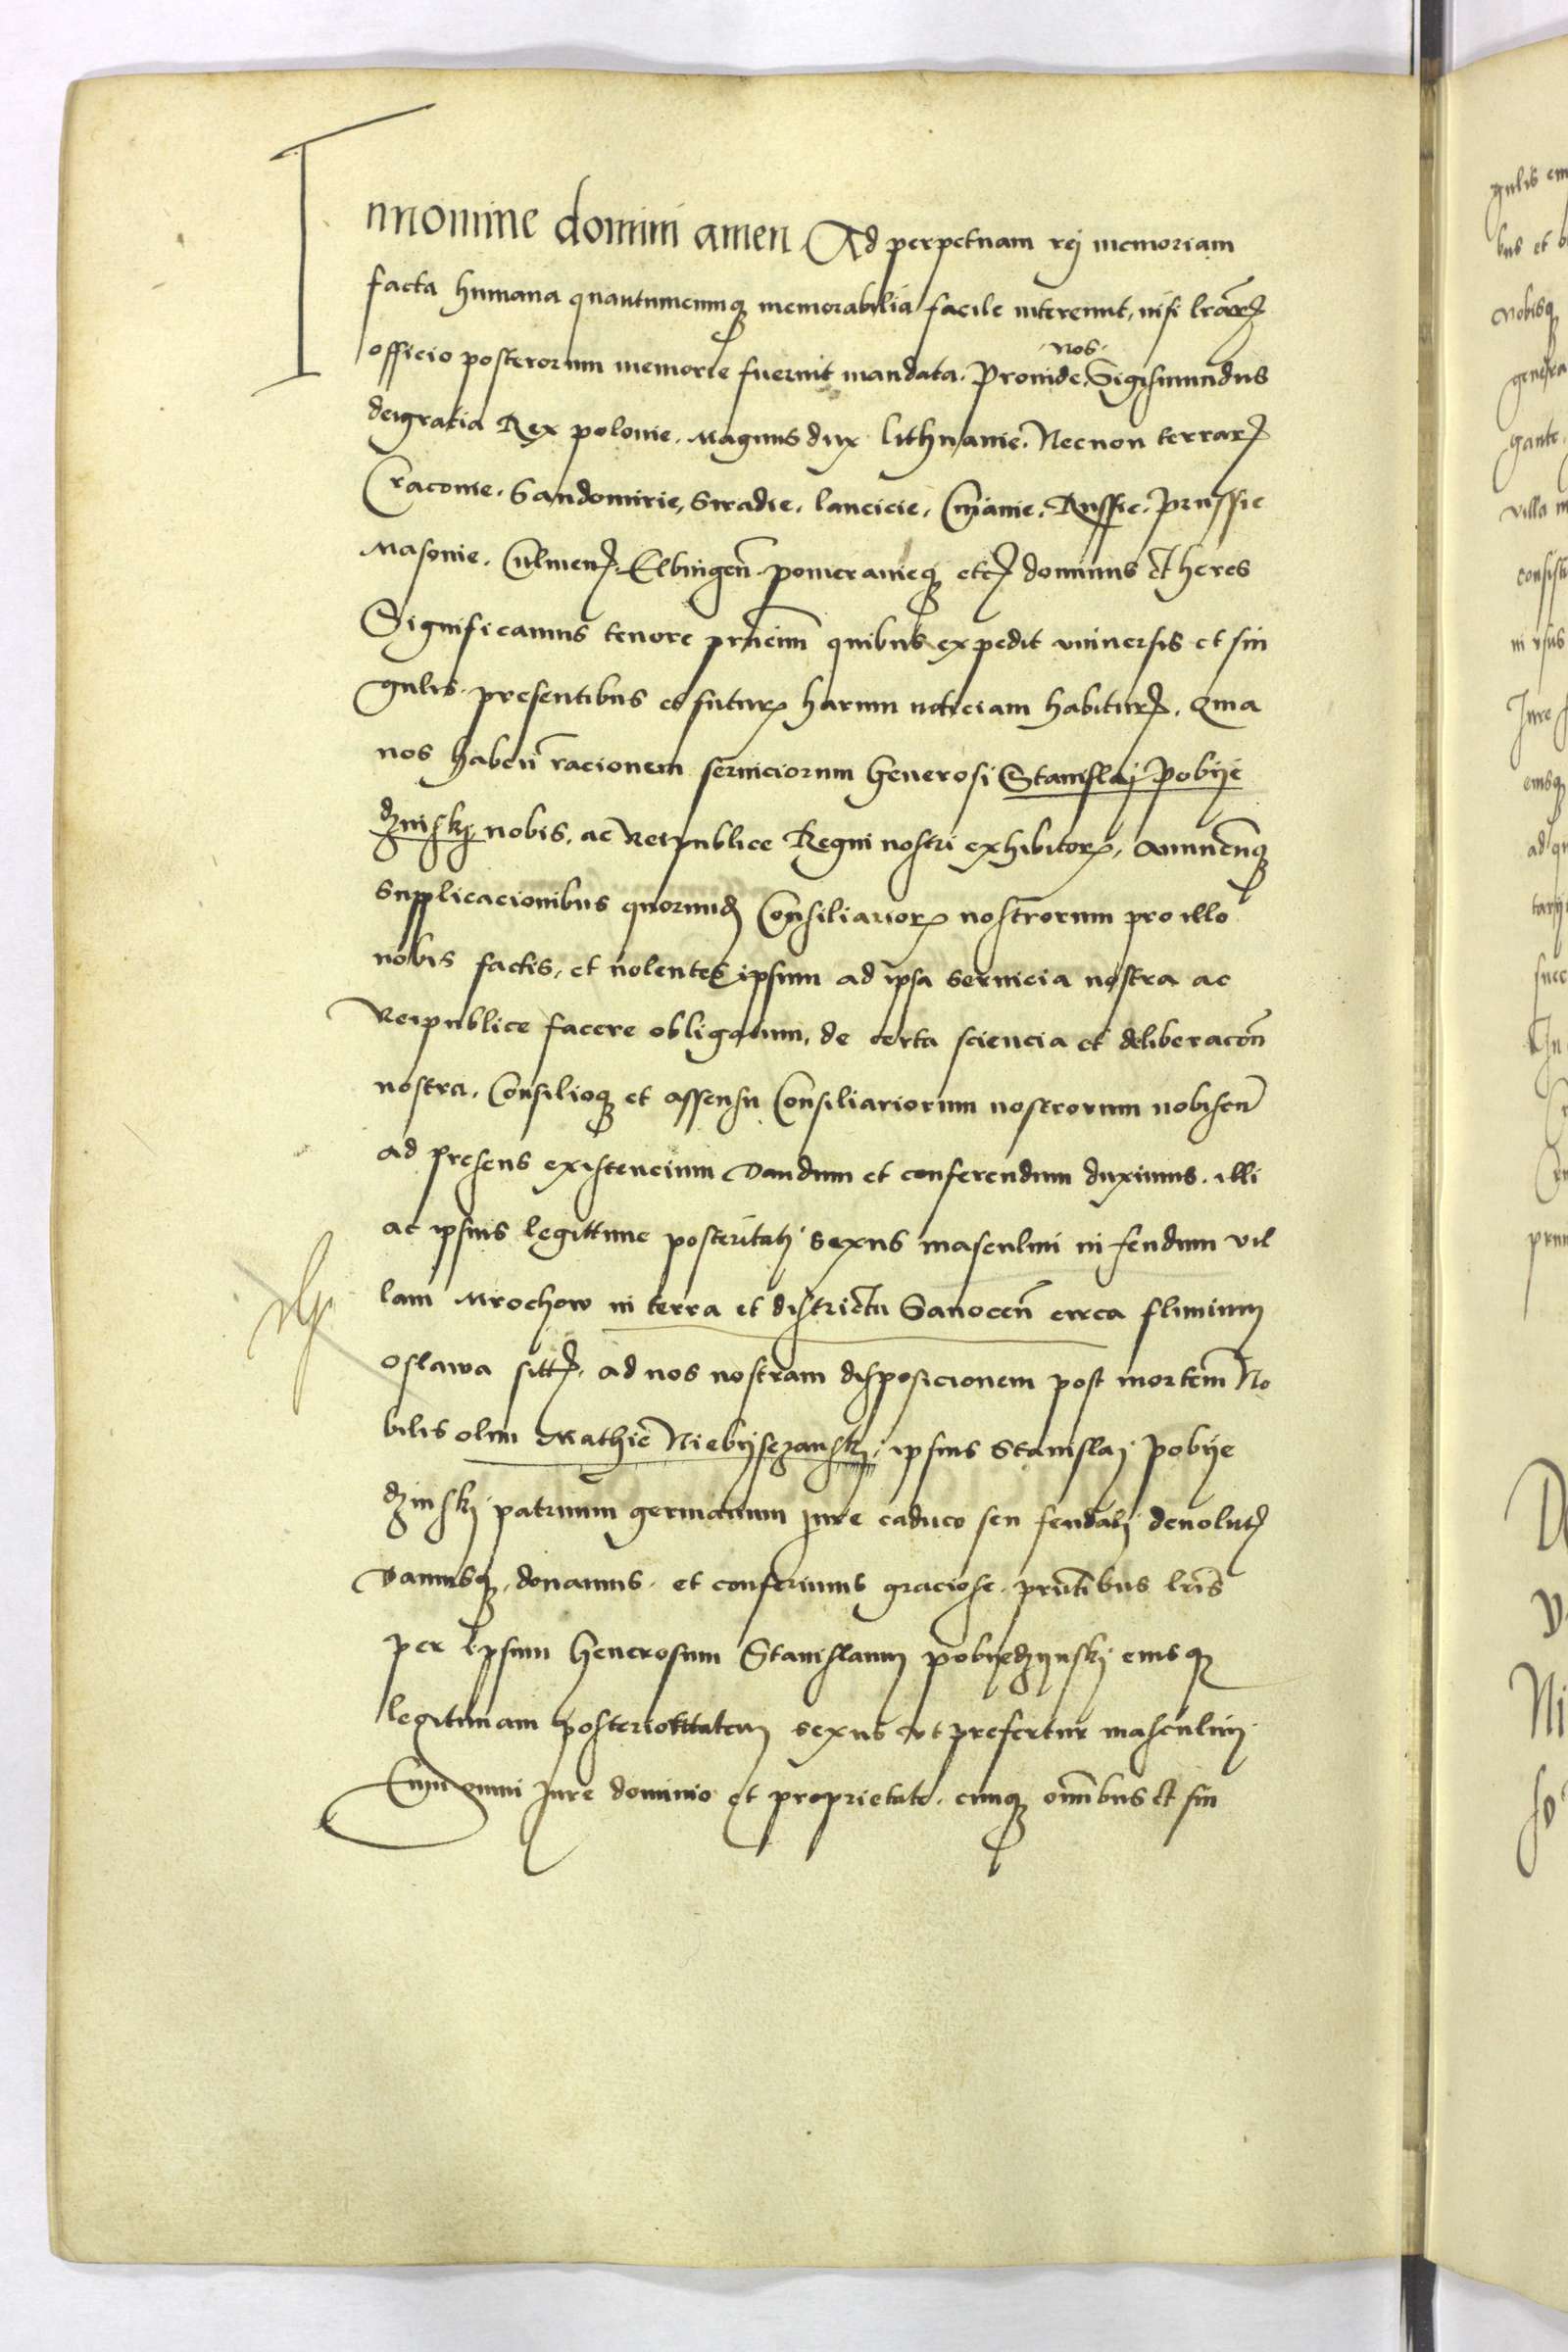 Innomine domini amen Ad perpetuam rej memoriam
facta humana quantumcumq memorabilia facile intereunt, nisi lrarꝝ
officio posterorum memorie fuerint mandata. Proinde nos Sigismundus
deigratia Rex polonie. Magnus dux lithuanie. Necnon terrarꝝ
Cracovie. Sandomirie, Siradie. lancicie, Cuiavie. Russie. prussie
Masovie. Culmenꝭ. Elbingeñ. pomeranieqꝫ etcꝭ dominus et heres
Significamus tenore prñcium quibus expedit universis et sin
gulis. presentibus et futurꝝ harum noticiam habiturꝭ. Quia
nos habeñ racionem serviciorum Generosi Stanislaj Pobije
dzinskj nobis, ac Reipublice Regni nostri exhibitorꝝ, Annuẽnqꝫ
supplicacionibus quorundꝫ Consiliariorꝝ nostrorum pro illo
nobis factis, et volentes ipsum ad ipsa servicia nostra ac
Reipublice facere obligatium, de certa sciencia et deliberacõñ
nostra. Consilioqꝫ et assensu Consiliariorum nostrorum nobiscũ
ad presens existencium Dandum et conferendum duximus. illi
ac ipsius legittime posteritatj sexus masculini in feudum vil
lam Mrochow in terra et districtu Sanoceñ circa fluvium
Oslawa sittꝭ. ad nos nostram disposicionem post mortem No
bilis olim Mathie Niebijsczanskj, ipsius Stanislaj Pobije
dzinskj patruum germanum jure caduco seu feudalj devolutꝭ
Damusqꝫ, donamus. et conferimus graciose. prñtibus lrĩs
per Ipsum Generosum Stanislaum pobijedzijnskj eiusqꝫ
legitimam posterioritatem sexus ut prefertur masculinj
Cum omni Jure dominio et proprietate. cumqꝫ omĩbus et sin